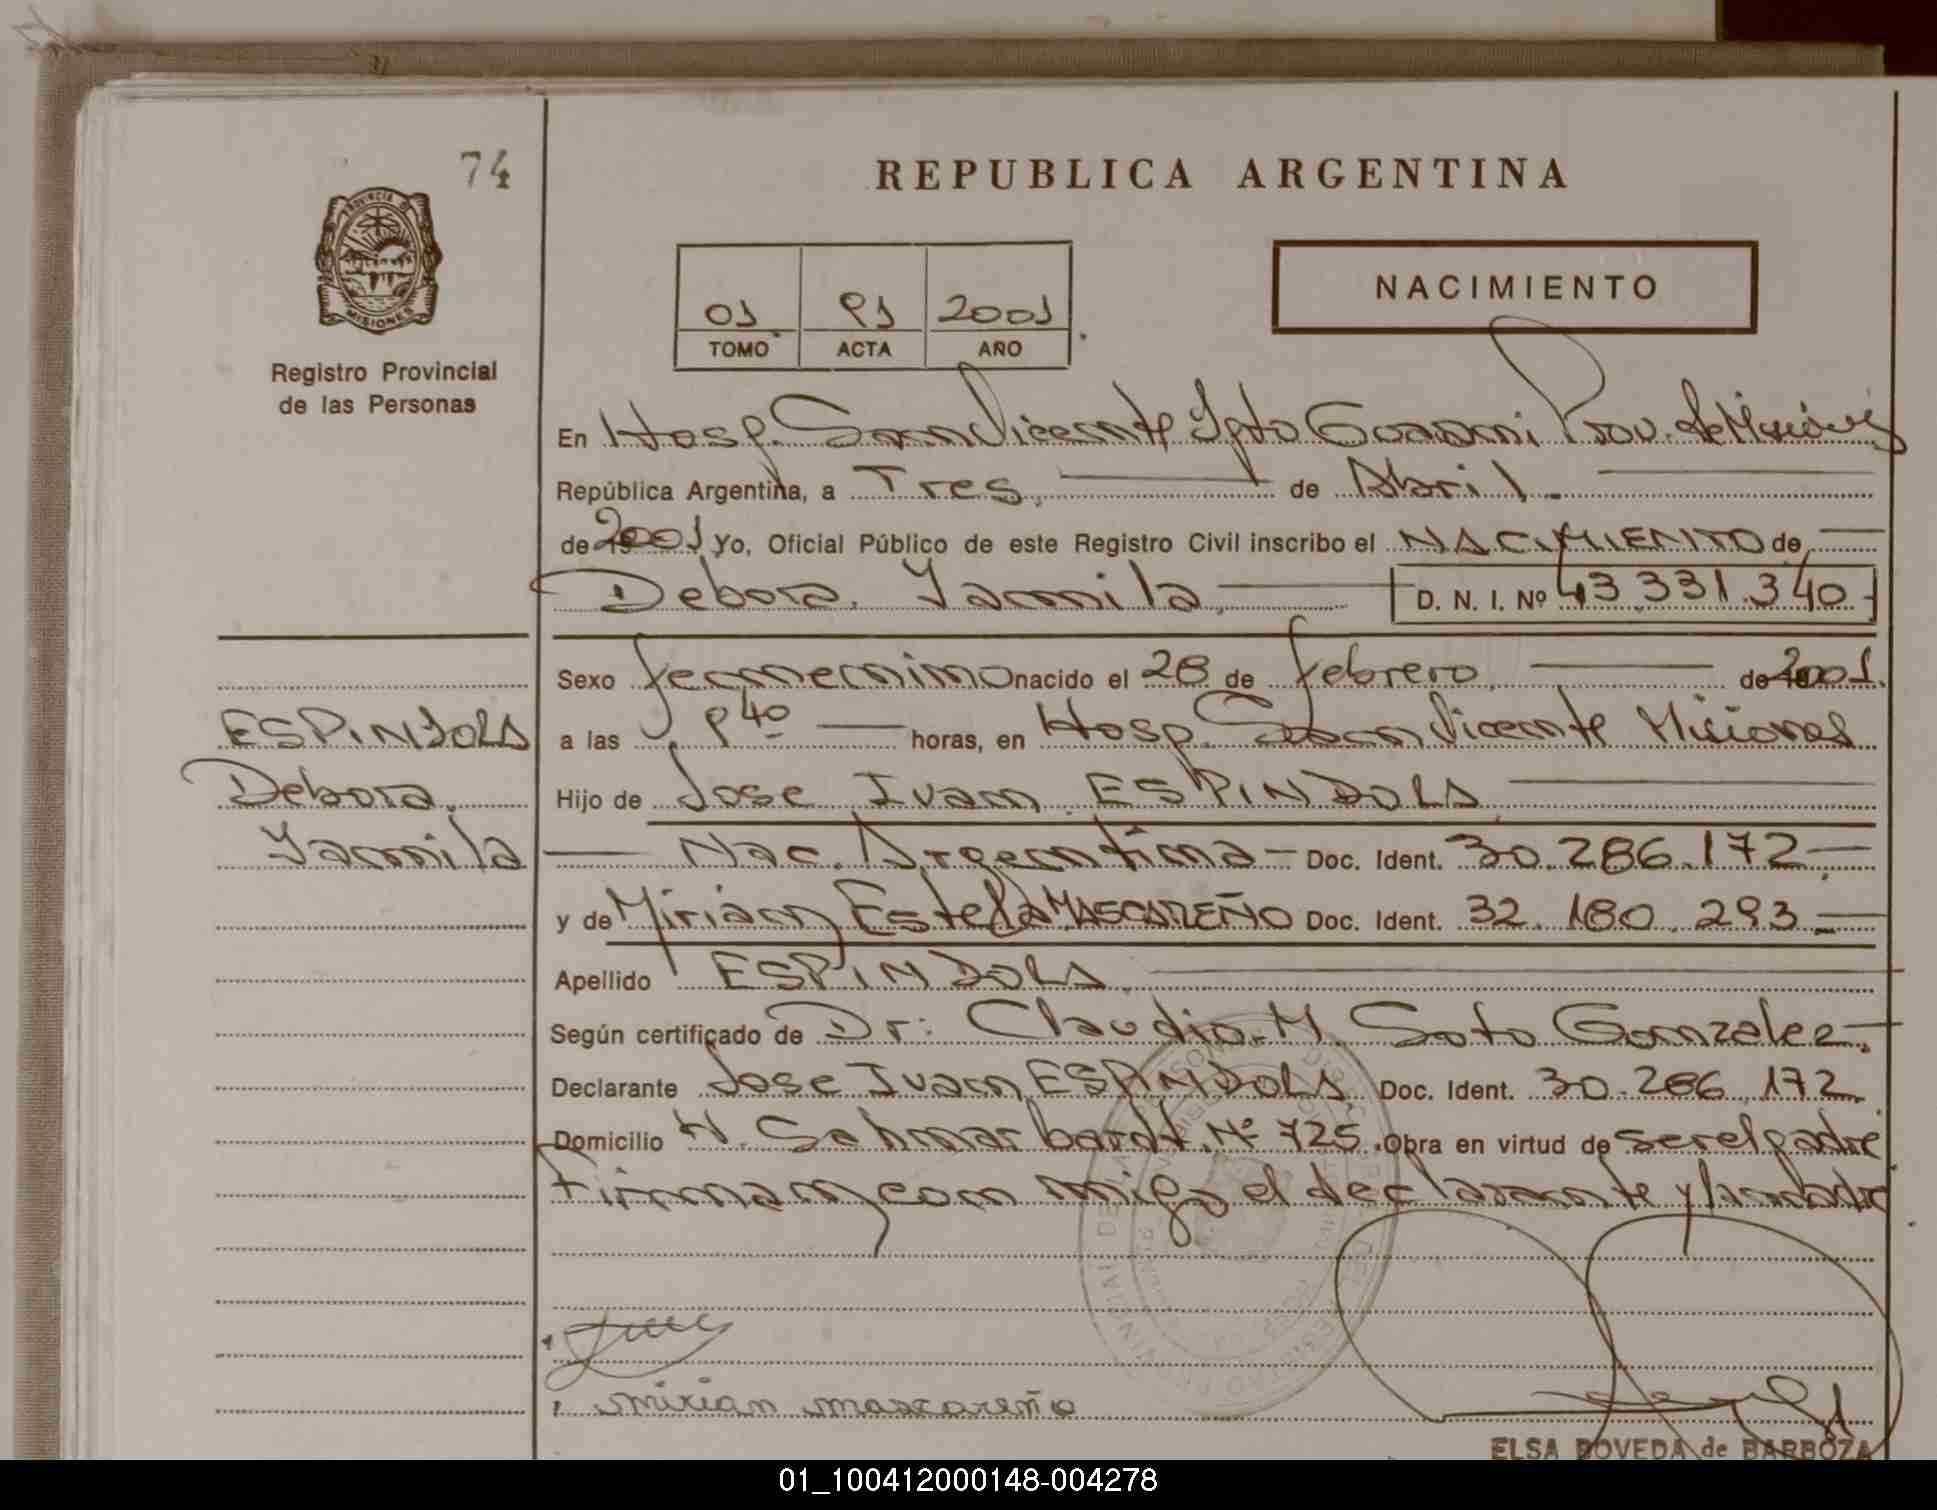 74
REPUBLICA ARGENTINA
PROVINCIA DE
MISIONES
NACIMIENTO
01 91 2001
TOMO ACTA AÑO
Registro Provincial
de las Personas
En Hosp. San Vicente Dpto Guarani Prov. de Misiones
República Argentina, a Tres. de Abril.
de 2001 Yo, Oficial Público de este Registro Civil inscribo el NACIMIENTO de
Debora Yamila D. N. I. Nº 43 331.340
Sexo femenino nacido el 28 de febrero de 2001.
ESPINDOLA
a las 9 40 horas, en Hosp. San Vicente Misiones
Debora
Hijo de Jose Ivan ESPINDOLA
Yamila
Nac. Argentina - Doc. Ident. 30.286.172
y de Miriam Estela MASCAREÑO Doc. Ident. 32.180.293
Apellido ESPINDOLA
Según certificado de Dr: Claudio M. Soto Gonzalez
Declarante Jose Ivan ESPINDOLA Doc. Ident. 30.286.172
Domicilio Nº 725 Obra en virtud de ser el padre
Firman con migo el declarante y la madre
mirian mascareño
ELSA BOVEDA de BARBOZA
01_100412000148-004278